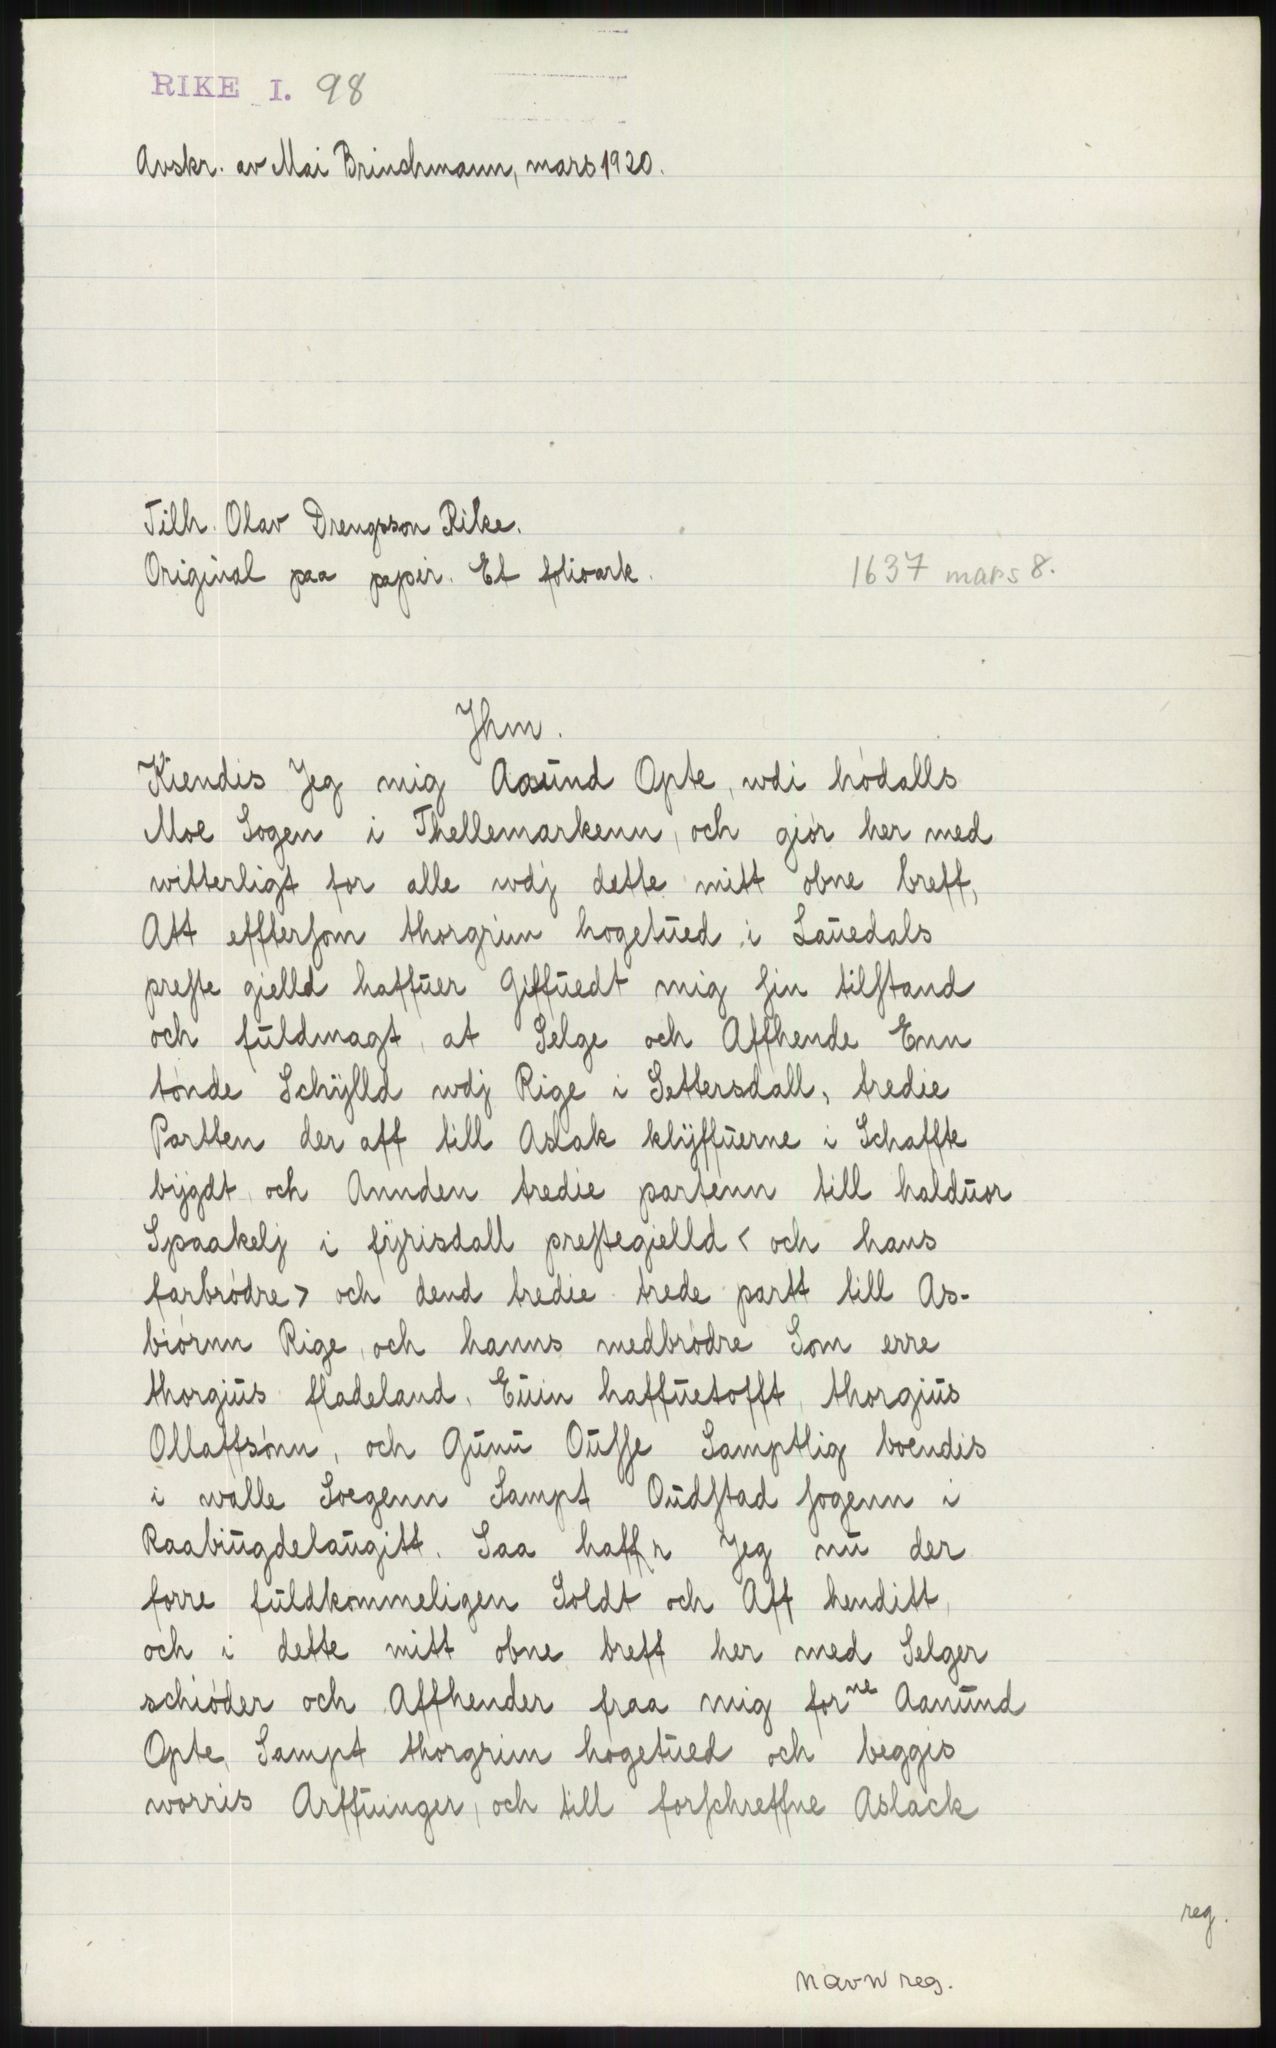 RIKE I. 98
Avskr. av Mai Brinchmann, mars 1920.
Tilh. Olav Drengsson Rike.
Original paa papir. Et folioark.
1637 mars 8.
Jhm.
Kiendis Jeg mig Aasund Opte, wdi hódalls
Moe Sogen i Thellemarkenn, och giór her med
witterligt for alle wdj dette mitt obne breff,
Att effterſom thorgrim hogetued i Lauedals
preſte gielld haffuer Giffuedt mig ſin tilſtand
och fuldmagt, at Selge och Affhende Enn
tónde Schÿlld wdj Rige i Settersdall, tredie
Partten der aff till Aslak klÿffuerne i Schaffte
bÿgdt, och Annden tredie partenn till halduor
Spaakelj i fÿrisdall preſtegielld < och hans
farbródre > och dend tredie trede partt till As-
biórnn Rige, och hanns medbródre Som erre
thorgius fladeland, Euin haffuetofft, thorgius
Ollaffsónn, och Gunu Ouſſe Samptlig boendis
i walle Soegenn Sampt Oudſtad ſogenn i
Raabiugdelaugitt. Saa haffr Jeg nu der
forre fuldkommeligen Soldt och Aff henditt,
och i dette mitt obne breff her med Selger
schióder och Affhender fraa mig forne Aanund
Opte, Sampt thorgrim hogetued och beggis
worris Arffuinger, och till forſchreffne Aslack
reg.
Navn reg.